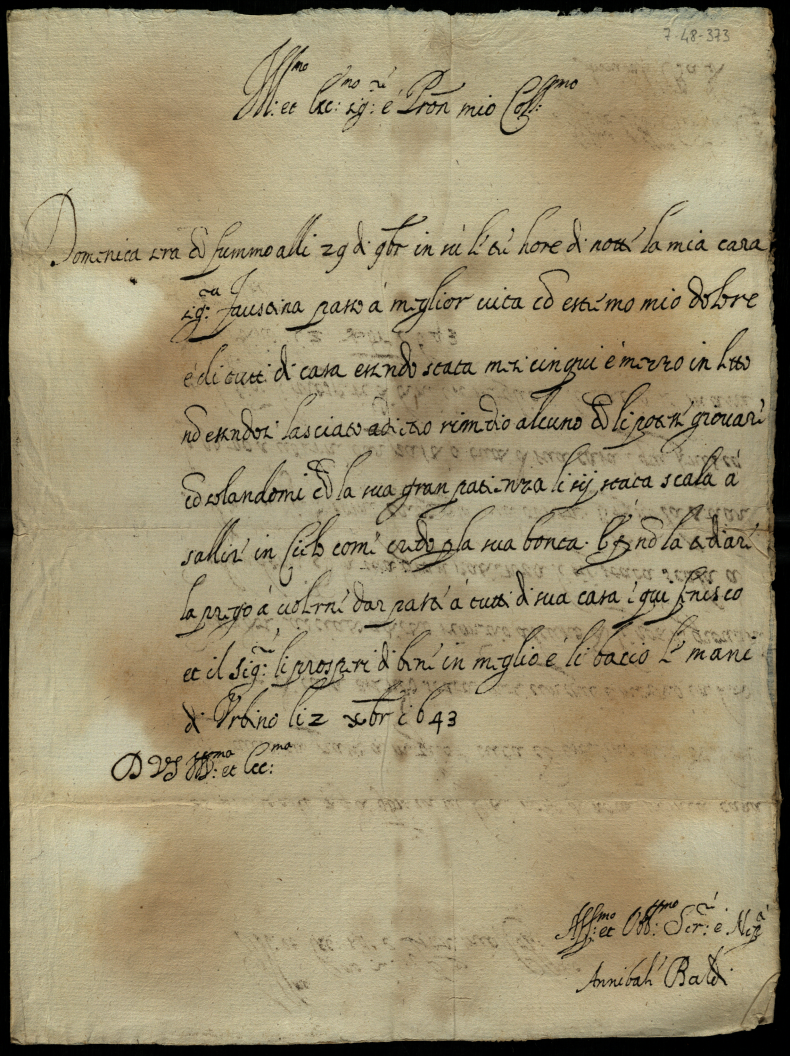 7-48-373
Ill:mo et Ecc:mo sig:re e Pron mio Coll:mo
Domenica sera che fummo alli 29 di 9bre in sù le tre hore di notte la mia cara
sig:ra Faustina passò á meglior vita con estremo mio dolore
é di tutti di casa essendo stata mesi cinque é mezzo in letto
non essendosi lasciato adietro rimedio alcuno che li potesse giovare
consolandomi che la sua gran patienza li sij stata scala á
sallire in Cielo come credo p la sua bontà. Et p non la tediare
la prego á volerne dar parte á tutti di sua casa é qui finisco
et il sig:re li prosperi di bene in meglio é li bacio le mani
di Urbino li 2 xbre 1643
D VS Ill:ma et Ecc:ma
Aff:mo et Obb:mo Ser:re é Nip:e
Annibale Baldi